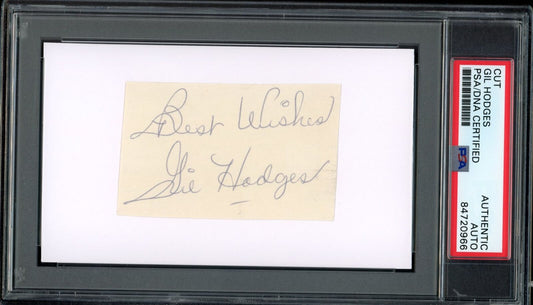 Best Wishes
Gil Hodges
CUT
GIL HODGES
PSA/DNA CERTIFIED
PSA
AUTHENTIC
AUTO
84720966